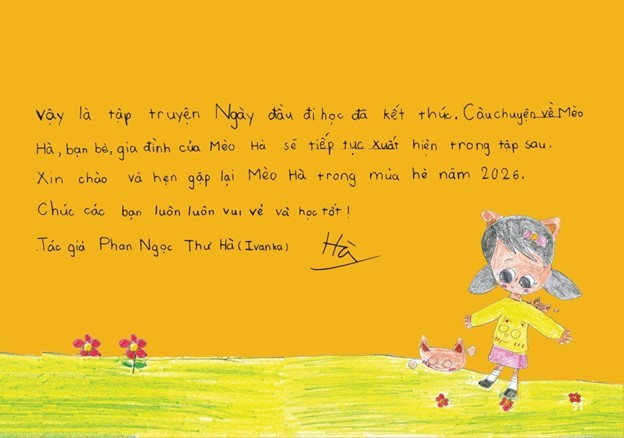 Vậy là tập truyện Ngày đầu đi học đã kết thúc. Câu chuyện về Mèo
Hà, bạn bè, gia đình của Mèo Hà sẽ tiếp tục xuất hiện trong tập sau.
Xin chào và hẹn gặp lại Mèo Hà trong mùa hè năm 2026.
Chúc các bạn luôn luôn vui vẻ và học tốt!
.Tác giả Phan Ngọc Thư Hà (Ivanka) Hà